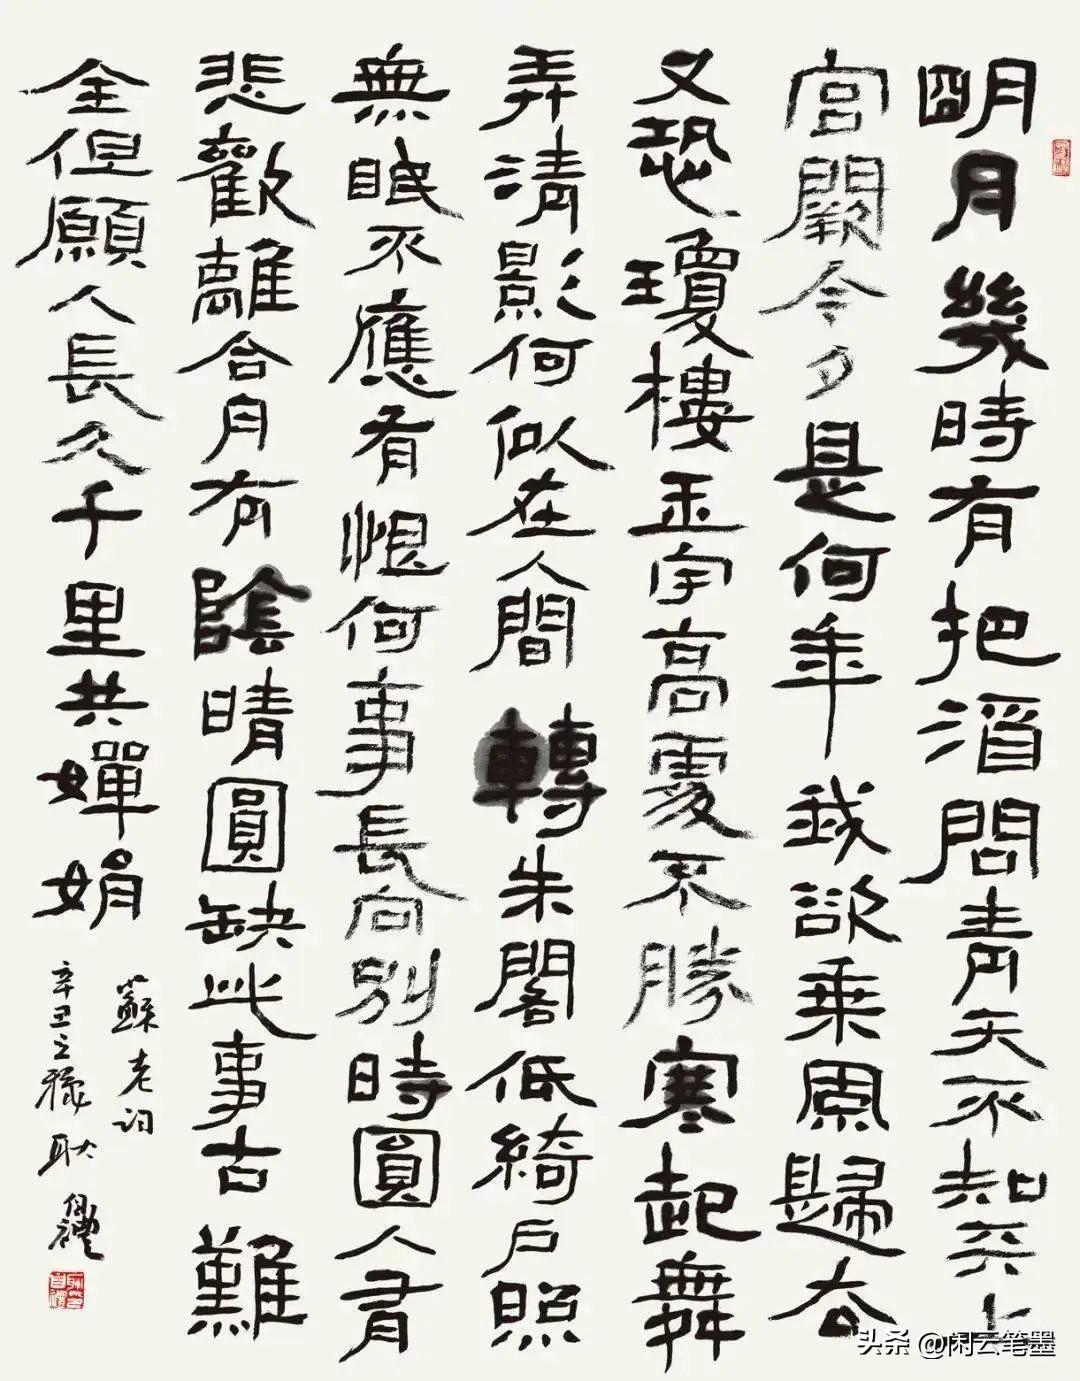 朙月幾時有把酒問青天不知天上
宮闕今夕是何年我欲乘風歸去
又恐瓊樓玉宇高處不勝寒起舞
弄清影何似在人間轉朱閣低綺戶照
無眠不應有恨何事長向別時圓人有
悲歡離合月有陰晴圓缺此事古難
全但願人長久千里共嬋娟
蘇老詞
辛丑之秋耿
头条 @闲云笔墨